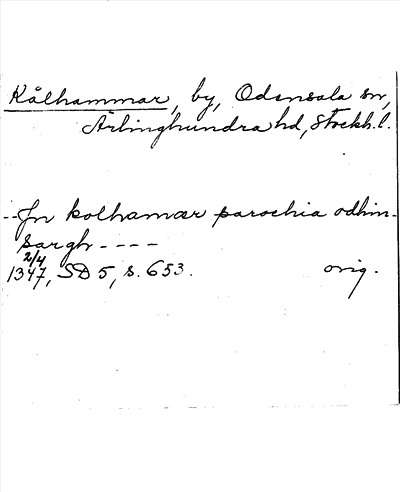 Kålhammar, by, Odensala sn,
Ärlinghundra hd, Stockh. l.
--Jn kolhamar parochia odhin-
sargh ----
2/4
1347, SD 5, s. 653. orig.